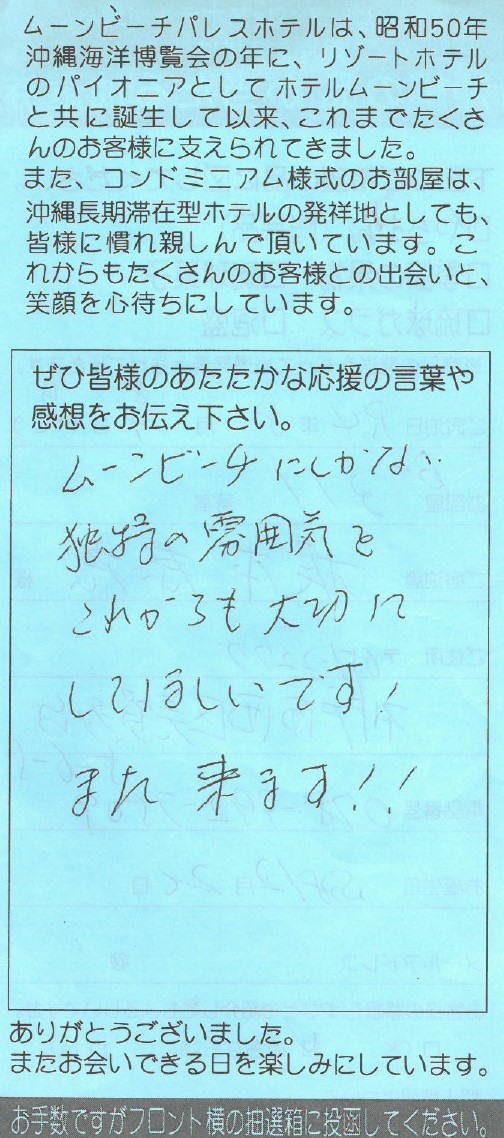 ムーンビーチパレスホテルは、昭和50年
沖縄海洋博覧会の年に、リゾートホテル
のパイオニアとしてホテルムーンビーチ
と共に誕生して以来、これまでたくさ
んのお客様に支えられてきました。
また、コンドミニアム様式のお部屋は、
沖縄長期滞在型ホテルの発祥地としても、
皆様に慣れ親しんで頂いています。こ
れからもたくさんのお客様との出会いと、
笑顔を心待ちにしています。
ぜひ皆様のあたたかな応援の言葉や
感想をお伝え下さい。
ムーンビーチにしかない
独特の雰囲気を
これからも大切に
してほしいです!
また来ます!!
ありがとうございました。
またお会いできる日を楽しみにしています。
お手数ですがフロント横の抽選箱に投函してください。